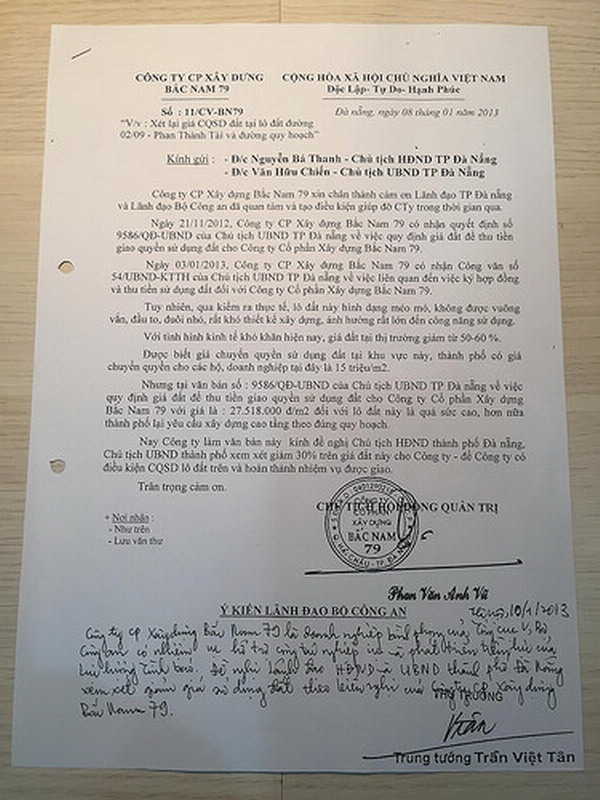 CÔNG TY CP XÂY DỰNG
BẮC NAM 79
CỘNG HÒA XÃ HỘI CHỦ NGHĨA VIỆT NAM
Độc Lập- Tự Do- Hạnh Phúc
Số : 11/CV-BN79
Đà nẵng, ngày 08 tháng 01 năm 2013
"V/v : Xét lại giá CQSD đất tại lô đất đường
02/09 - Phan Thành Tài và đường quy hoạch"
Kính gửi : - Đ/c Nguyễn Bá Thanh - Chủ tịch HĐND TP Đà Nẵng
- Đ/c Văn Hữu Chiến - Chủ tịch UBND TP Đà Nẵng
Công ty CP Xây dựng Bắc Nam 79 xin chân thành cám ơn Lãnh đạo TP Đà nẵng
và Lãnh đạo Bộ Công an đã quan tâm và tạo điều kiện giúp đỡ CTy trong thời gian qua.
Ngày 21/11/2012, Công ty CP Xây dựng Bắc Nam 79 có nhận quyết định số
9586/QĐ-UBND của Chủ tịch UBND TP Đà nẵng về việc quy định giá đất để thu tiền
giao quyền sử dụng đất cho Công ty Cổ phần Xây dựng Bắc Nam 79.
Ngày 03/01/2013, Công ty CP Xây dựng Bắc Nam 79 có nhận Công văn số
54/UBND-KTTH của Chủ tịch UBND TP Đà nẵng về việc liên quan đến việc ký hợp đồng
và thu tiền sử dụng đất đối với Công ty Cổ phần Xây dựng Bắc Nam 79.
Tuy nhiên, qua kiểm ra thực tế, lô đất này hình dạng méo mó, không được vuông
vắn, đầu to, đuôi nhỏ, rất khó thiết kế xây dựng, ảnh hưởng rất lớn đến công năng sử dụng.
Với tình hình kinh tế khó khăn hiện nay, giá đất tại thị trường giảm từ 50-60 %.
Được biết giá chuyển quyền sử dụng đất tại khu vực này, thành phố có giá
chuyển quyền cho các hộ, doanh nghiệp tại đây là 15 triệu/m2.
Nhưng tại văn bản số : 9586/QĐ-UBND của Chủ tịch UBND TP Đà nẵng về việc
quy định giá đất để thu tiền giao quyền sử dụng đất cho Công ty Cổ phần Xây dựng
Bắc Nam 79 với giá là : 27.518.000 đ/m2 đối với lô đất này là quá sức cao, hơn nữa
thành phố lại yêu cầu xây dựng cao tầng theo đúng quy hoạch.
Nay Công ty làm văn bản này kính đề nghị Chủ tịch HĐND thành phố Đà nẵng,
Chủ tịch UBND thành phố xem xét giảm 30% trên giá đất này cho Công ty - để Công ty có
điều kiện CQSD lô đất trên và hoàn thành nhiệm vụ được giao.
Trân trọng cám ơn.
CHỦ TỊCH HỘI ĐỒNG QUẢN TRỊ
+ Nơi nhận :
- Như trên
- Lưu văn thư
CÔNG TY
CỔ PHẦN
XÂY DỰNG
BẮC NAM
79
Phan Văn Anh Vũ
Ý KIẾN LÃNH ĐẠO BỘ CÔNG AN
Hà Nội, 10/1/2013
Công ty CP Xây dựng Bắc Nam 79 là doanh nghiệp bình phong của Tổng cục V, Bộ
Công an có nhiệm vụ hỗ trợ công tác nghiệp vụ và phát triển tiềm lực của
Lực lượng Tình báo. Đề nghị Lãnh đạo HĐND và UBND thành phố Đà Nẵng
xem xét giảm giá sử dụng đất theo kiến nghị của Công ty CP Xây dựng
Bắc Nam 79.
THỨ TRƯỞNG
Trung tướng Trần Việt Tân